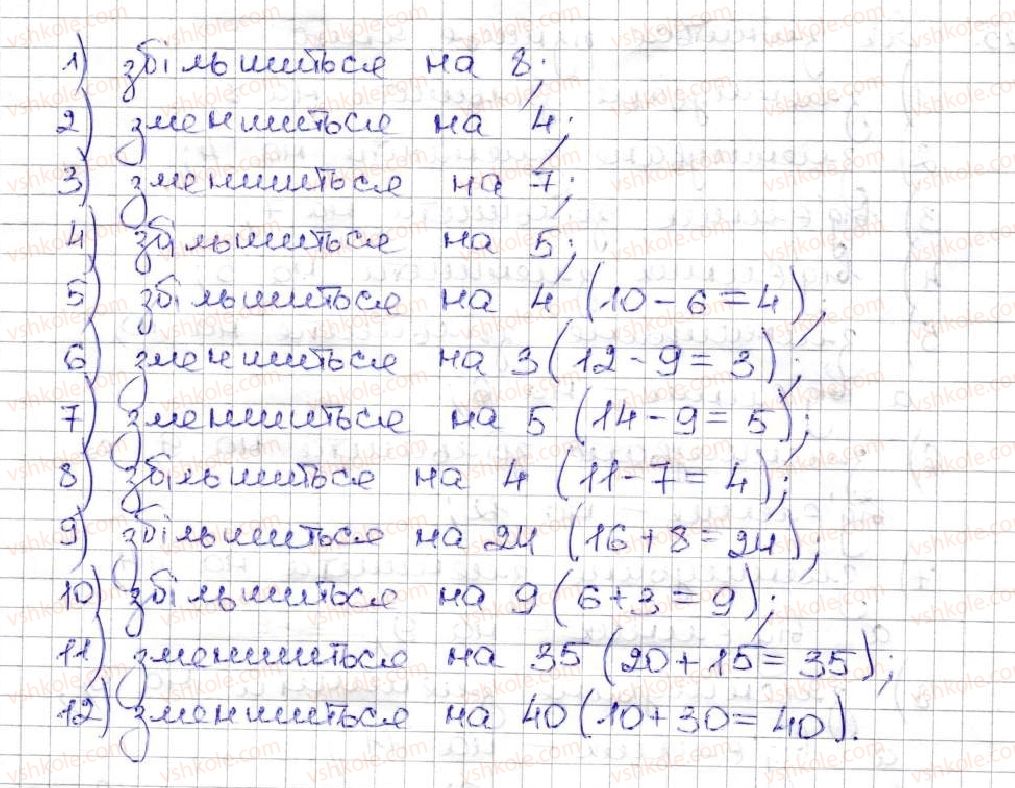 1) збільшиться на 8;
2) зменшиться на 4;
3) зменшиться на 7;
4) збільшиться на 5;
5) збільшиться на 4 (10 - 6 = 4),
6) зменшиться на 3 (12 - 9 = 3);
7) зменшиться на 5 (14 - 9 = 5);
8) збільшиться на 4 (11 - 7 = 4);
9) збільшиться на 24 (16 + 8 = 24);
10) збільшиться на 9 (6 + 3 = 9);
11) зменшиться на 35 (20 + 15 = 35);
12) зменшиться на 40 (10 + 30 = 40).
vshkole.com